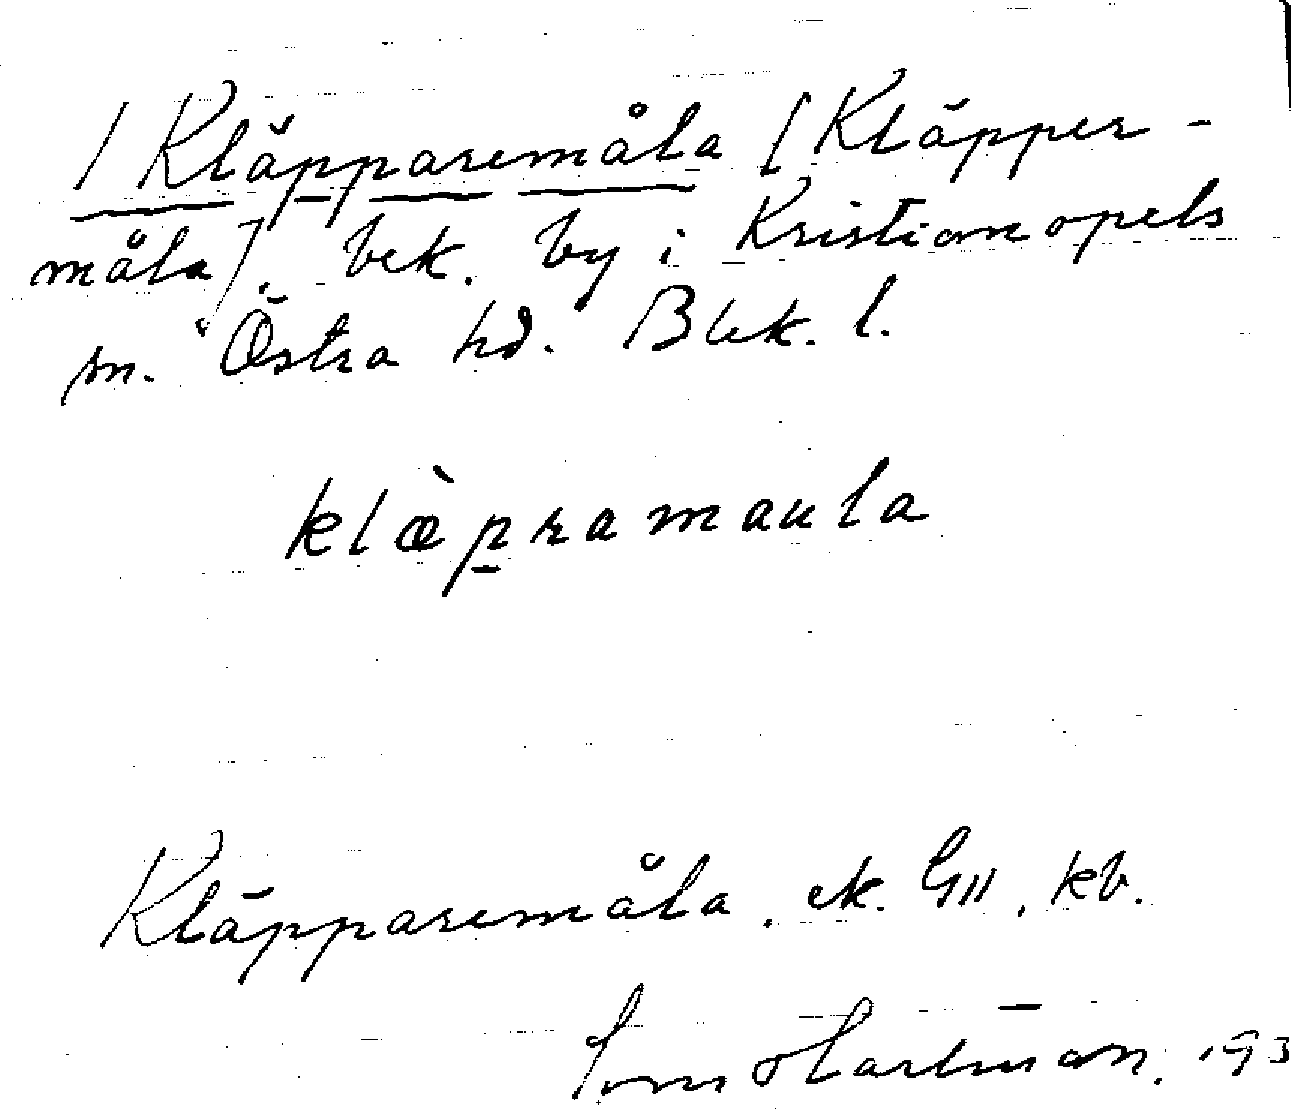 / Kläpparemåla [Kläpper-
måla], bek. by i Kristianopels
sn. Östra hd. Blek. l.
klæ̀pramaula
Kläpparemåla, ek. GII, kb.
Hartman, 193